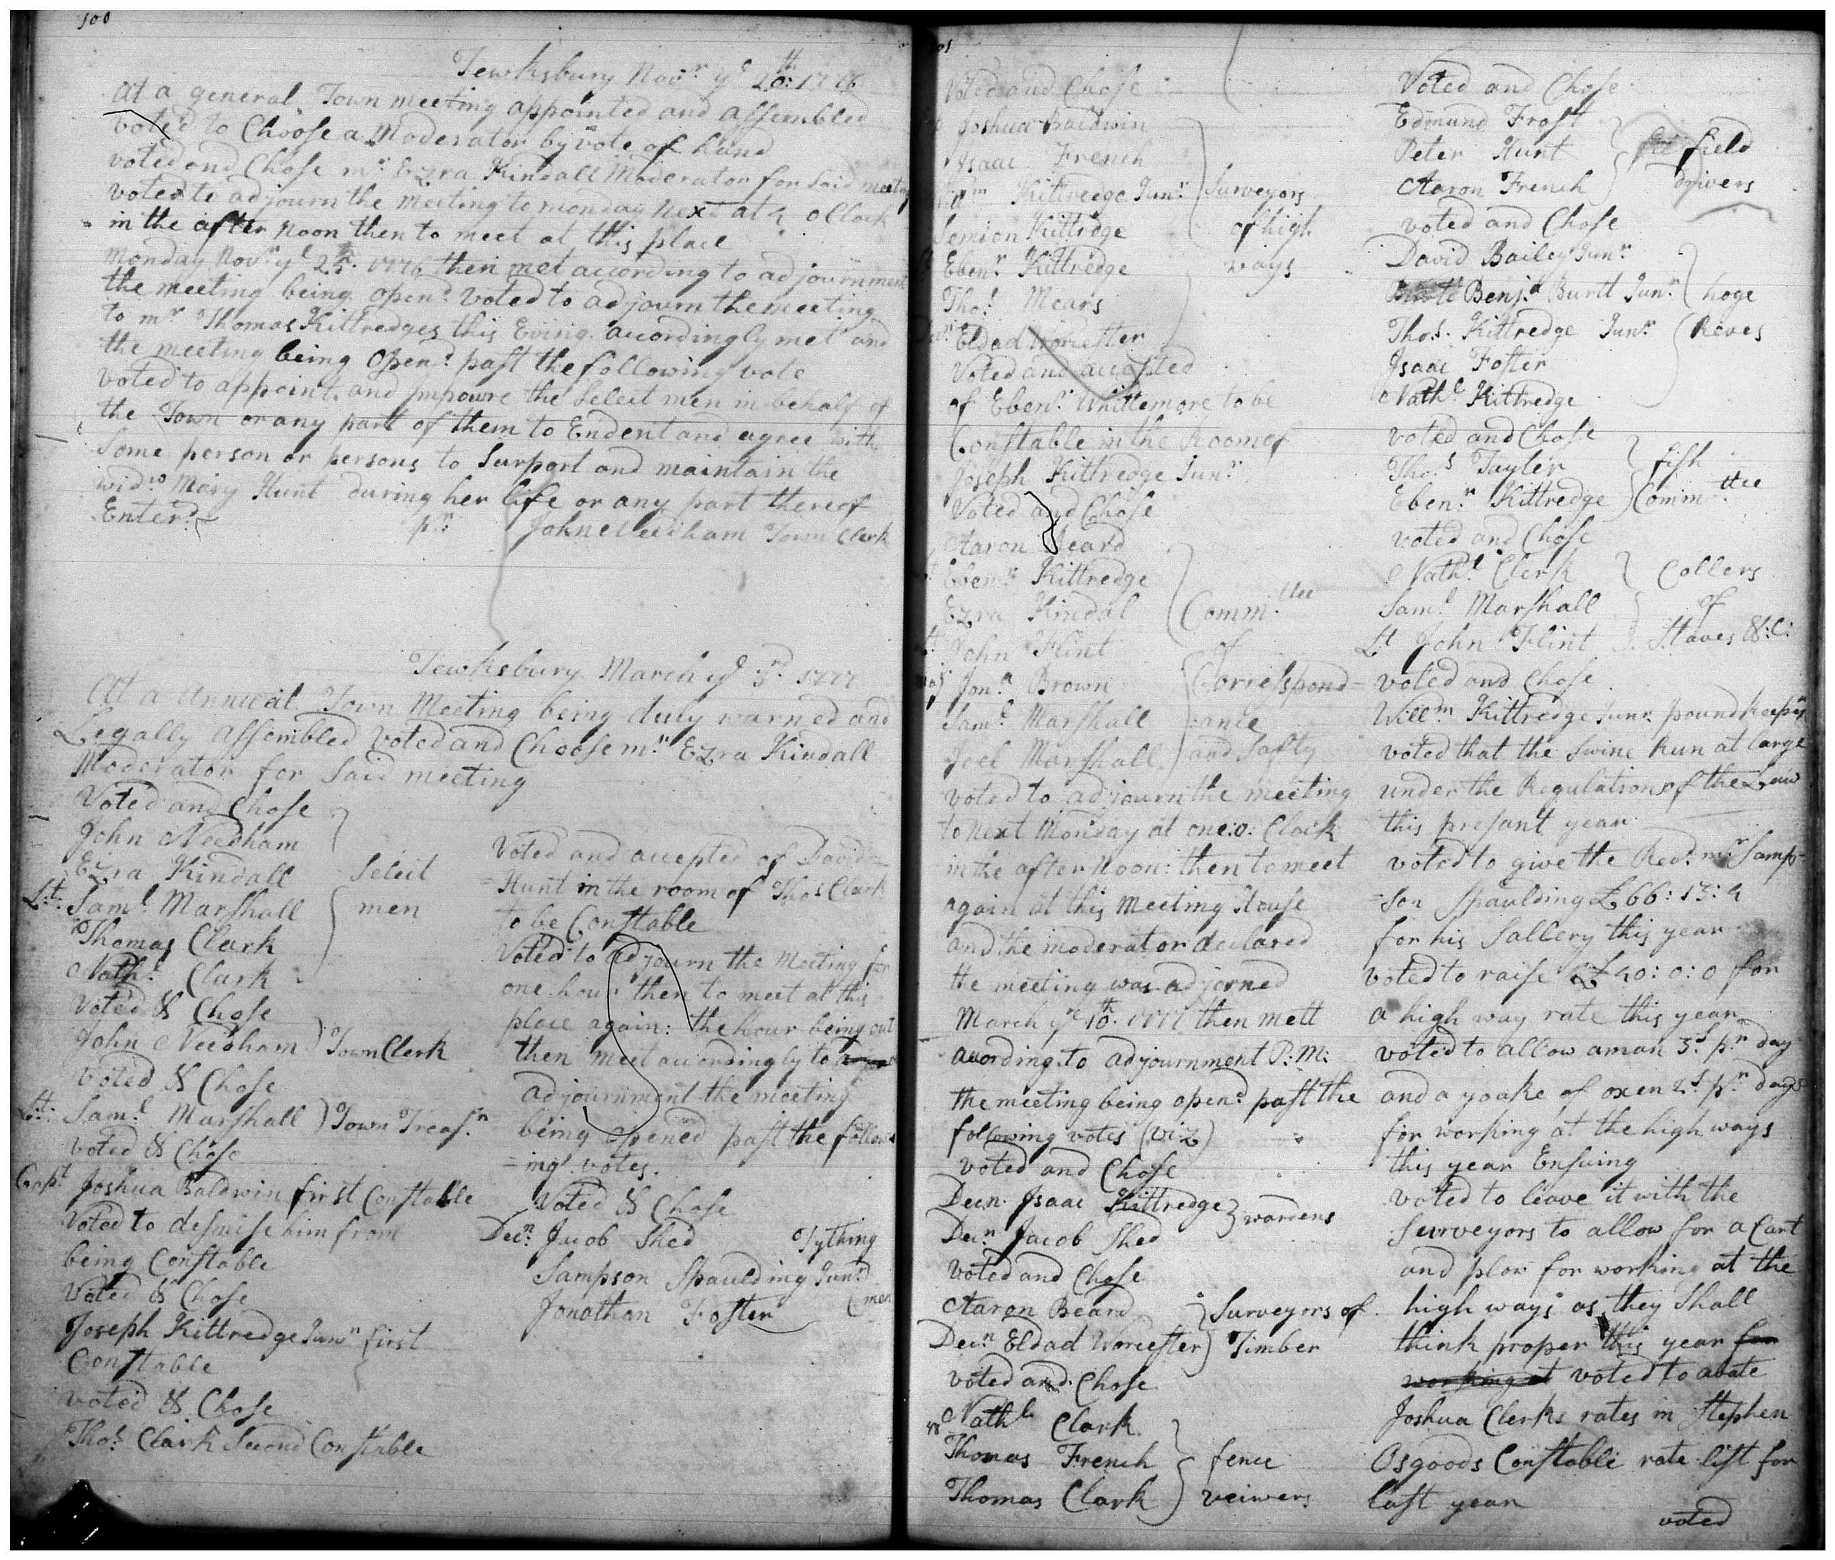 500
Tewksbury Novr ye 20th: 1776
At a general Town meeting appointed and assembled
voted to Choose a Moderator by vote of hand
voted and Chose mr Ezra Kindall Moderator for Said meeting
voted to adjourn the meeting to monday Next at 4 oClock
in the after Noon then to meet at this place
Monday Novr ye 25th 1776 then met according to adjournment
the meeting being opend voted to adjourn the meeting
to mr Thomas Kittredges this Evinig accordingly met and
the meeting being opend past the following vote
voted to appoint and Impowre the Select men in behalf of
the Town or any part of them to Endent and agree with
Some person or persons to Surport and maintain the
widw Mary Hunt during her life or any part thereof
Enterd pr John Needham Town Clerk
Tewksbury March ye 3rd 1777
At a Annual Town Meeting being duly warned and
Legally assembled voted and Choose mr Ezra Kindall
Moderator for Said meeting
Voted and Chose
John Needham
Ezra Kindall
Lt: Saml Marshall
Thomas Clark
Nathl Clark
Select
men
voted & Chose
John Needham ) Town Clerk
voted & Chose
Lt: Saml Marshall ) Town Treasr
voted & Chose
Capt Joshua Baldwin first Constable
voted to desmise him from
being Constable
voted & Chose
Joseph Kittredge Junr first
Constable
voted & Chose
Thos Clark Second Constable
voted and accepted of David
Hunt in the room of Thos Clark
to be Constable
voted to adjourn the Meeting for
one hour then to meet at this
place again: the hour being out
then meet accordingly to
adjournment the meeting
being opened past the follow
=ing votes.
Voted & Chose
Decn Jacob Shed
Sampson Spaulding Junr
Jonathan Foster
Tything
men
Voted and Chose
Joshua Baldwin
Isaac French
Wm Kittredge Junr
Semion Kittridge
Ebenr Kittredge
Thos Mears
Eldad Worcester
Surveyors
of high
ways
Voted and accepted
of Ebenr Whittemore to be
Constable in the Room of
Joseph Kittredge Junr
Voted and Chose
Aaron Beard
Ebenr Kittredge
Ezra Kindal
Lt John Flint
Jona Brown
Saml Marshall
Joel Marshall
Committee
of
Correspond=
=ance
and Safty
voted to adjourn the meeting
to Next Monday at one:o: Clock
in the after Noon: then to meet
again at this Meeting House
and the moderator declared
the meeting was adjorned
March ye 10th 1777 then mett
acording to adjournment P:M:
the meeting being opend past the
following votes (viz)
voted and Chose
Decn Isaac Kittredge
Decn Jacob Shed
wardens
voted and Chose
Aaron Beard
Decn Eldad Worcester
Surveyors of
Timber
voted and Chose
Nathl Clark
Thomas French
Thomas Clark
fence
veiwers
Voted and Chose
Edmund Frost
Peter Hunt
Aaron French
field
drivers
voted and Chose
David Bailey Junr
Benja Burtt Junr
Thos Kittredge Junr
Isaac Foster
Nathl Kittredge
hoge
Reves
voted and Chose
Thos Tayler
Ebenr Kittredge
fish
Committee
voted and Chose
Nathl Clerk
Saml Marshall
Lt John Flint
Collers
of
Staves &:C:
voted and Chose
Willm Kittredge Junr poundkeepr
voted that the Swine Run at large
under the Regulation of the Law
this presant year
voted to give the Revd mr Samp=
=son Spaulding £66:13:4
for his Sallery this year
voted to raise £40:0:0 for
a high way rate this year
voted to allow a man 3s pr day
and a yoake of oxen 2s pr day
for working at the high ways
this year Ensuing
voted to leave it with the
Surveyors to allow for a Cart
and plow for working at the
high ways as they Shall
think proper this year for
working at voted to abate
Joshua Clerks rates in Stephen
Osgoods Constable rate list for
last year
voted